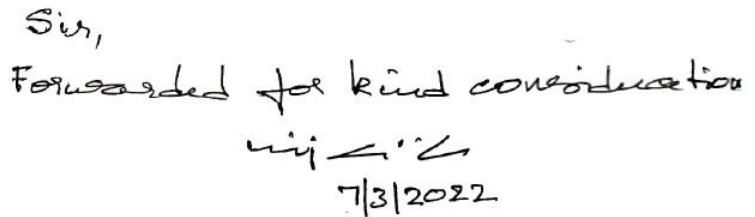 Sir,
Forwarded for kind consideration
7/3/2022